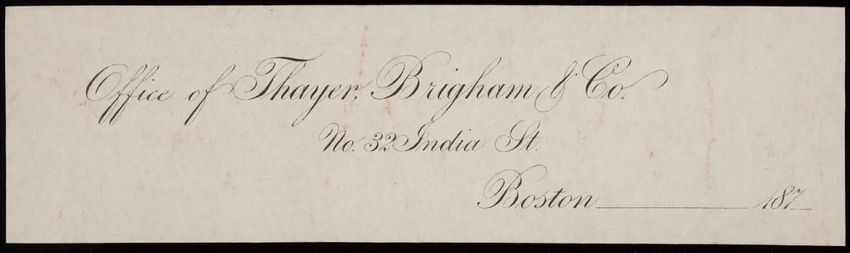 Office of Thayer, Brigham & Co.
No. 32 India St.
Boston 187